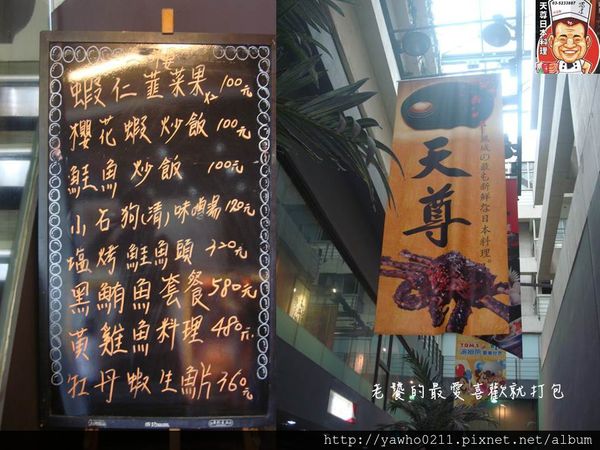 蝦仁韮菜果x2 100元
櫻花蝦炒飯 100元
鮭魚炒飯 100元
小石狗(清)味噌湯 120元
塩烤鮭魚頭 320元
黑鮪魚套餐 580元
黃雞魚料理 480元
牡丹蝦生魚片 360元
天尊
竹塹城の最も新鮮な日本料理。
天尊日本料理
03-5233887
TOMS
老饕的最愛喜歡就打包
http://yawho0211.pixnet.net/album